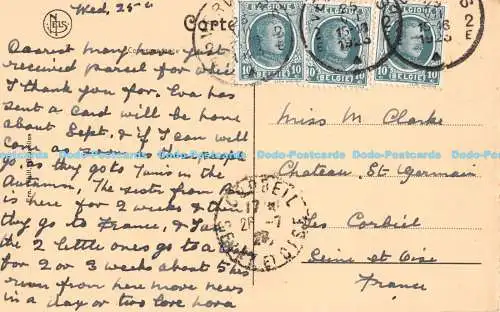 Wed, 25th
Carte
Dearest mary have just
received parcel for which
I thank you for. Eva has
sent a card will be home
about Sept, & if I can will
come as soon as the people
go, as they go to Tunis in the
Autumn, The sister from
is here for 2 weeks & then
they go to France, &
the 2 little ones go to a
for 2 or 3 weeks about 5 hrs
run from here more news
in a day or two love nora
BELGIQUE
10 10
BELGIE
BELGIQUE
10 10
BELGIE
BELGIQUE
10 10
BELGIE
1923
1923
2
E
Miss M. Clarke
Chateau, St-Germain
Les Corbiel
Seine et Oise
France
CORBEIL
17
26 -7
23
SEINE ET OISE